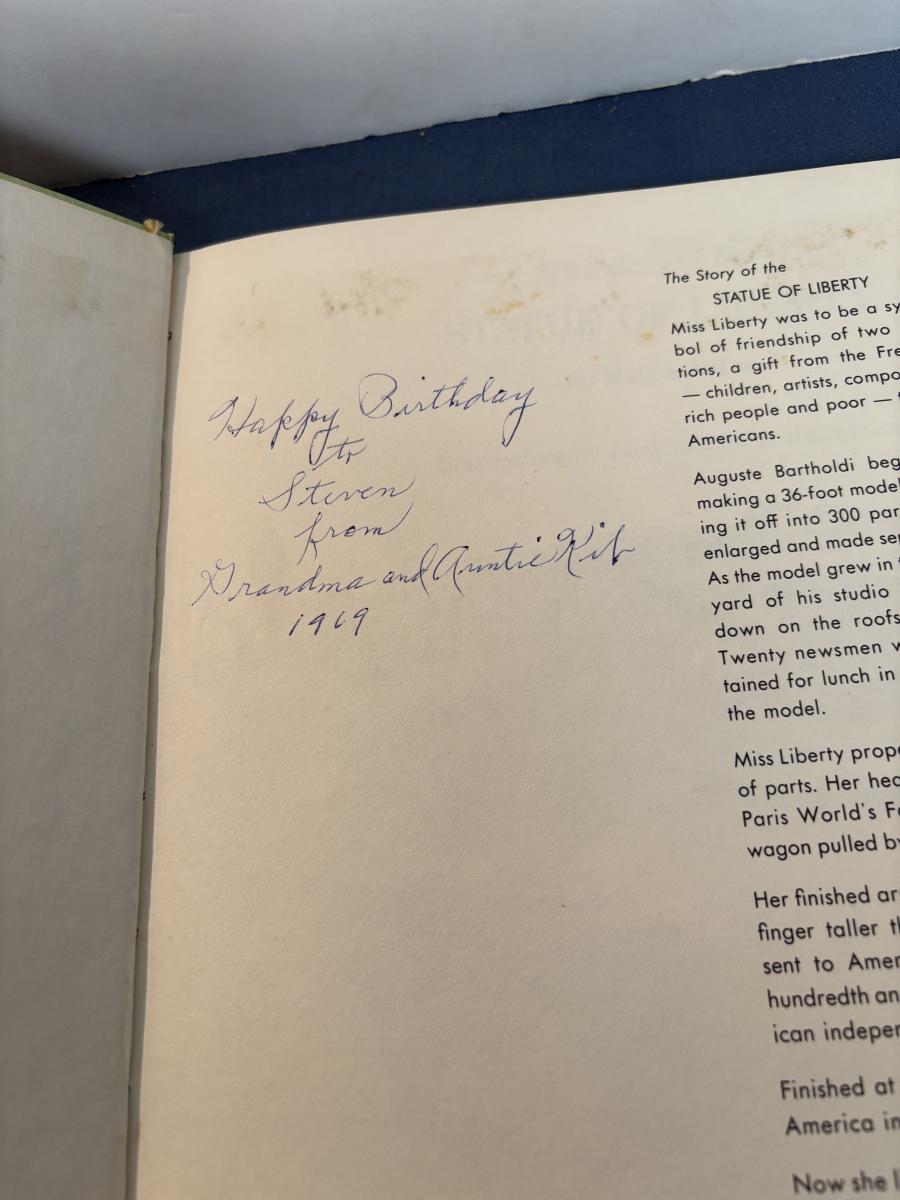 Happy Birthday
to
Steven
from
Grandma and Auntie
1969
The Story of the
STATUE OF LIBERTY
Miss Liberty was to be a sy
bol of friendship of two
tions, a gift from the Fre
— children, artists, compo
rich people and poor —
Americans.
Auguste Bartholdi beg
making a 36-foot model
ing it off into 300 par
enlarged and made se
As the model grew in
yard of his studio
down on the roofs
Twenty newsmen w
tained for lunch in
the model.
Miss Liberty prope
of parts. Her hea
Paris World's Fa
wagon pulled by
Her finished ar
finger taller th
sent to Amer
hundredth an
ican indepen
Finished at
America in
Now she l